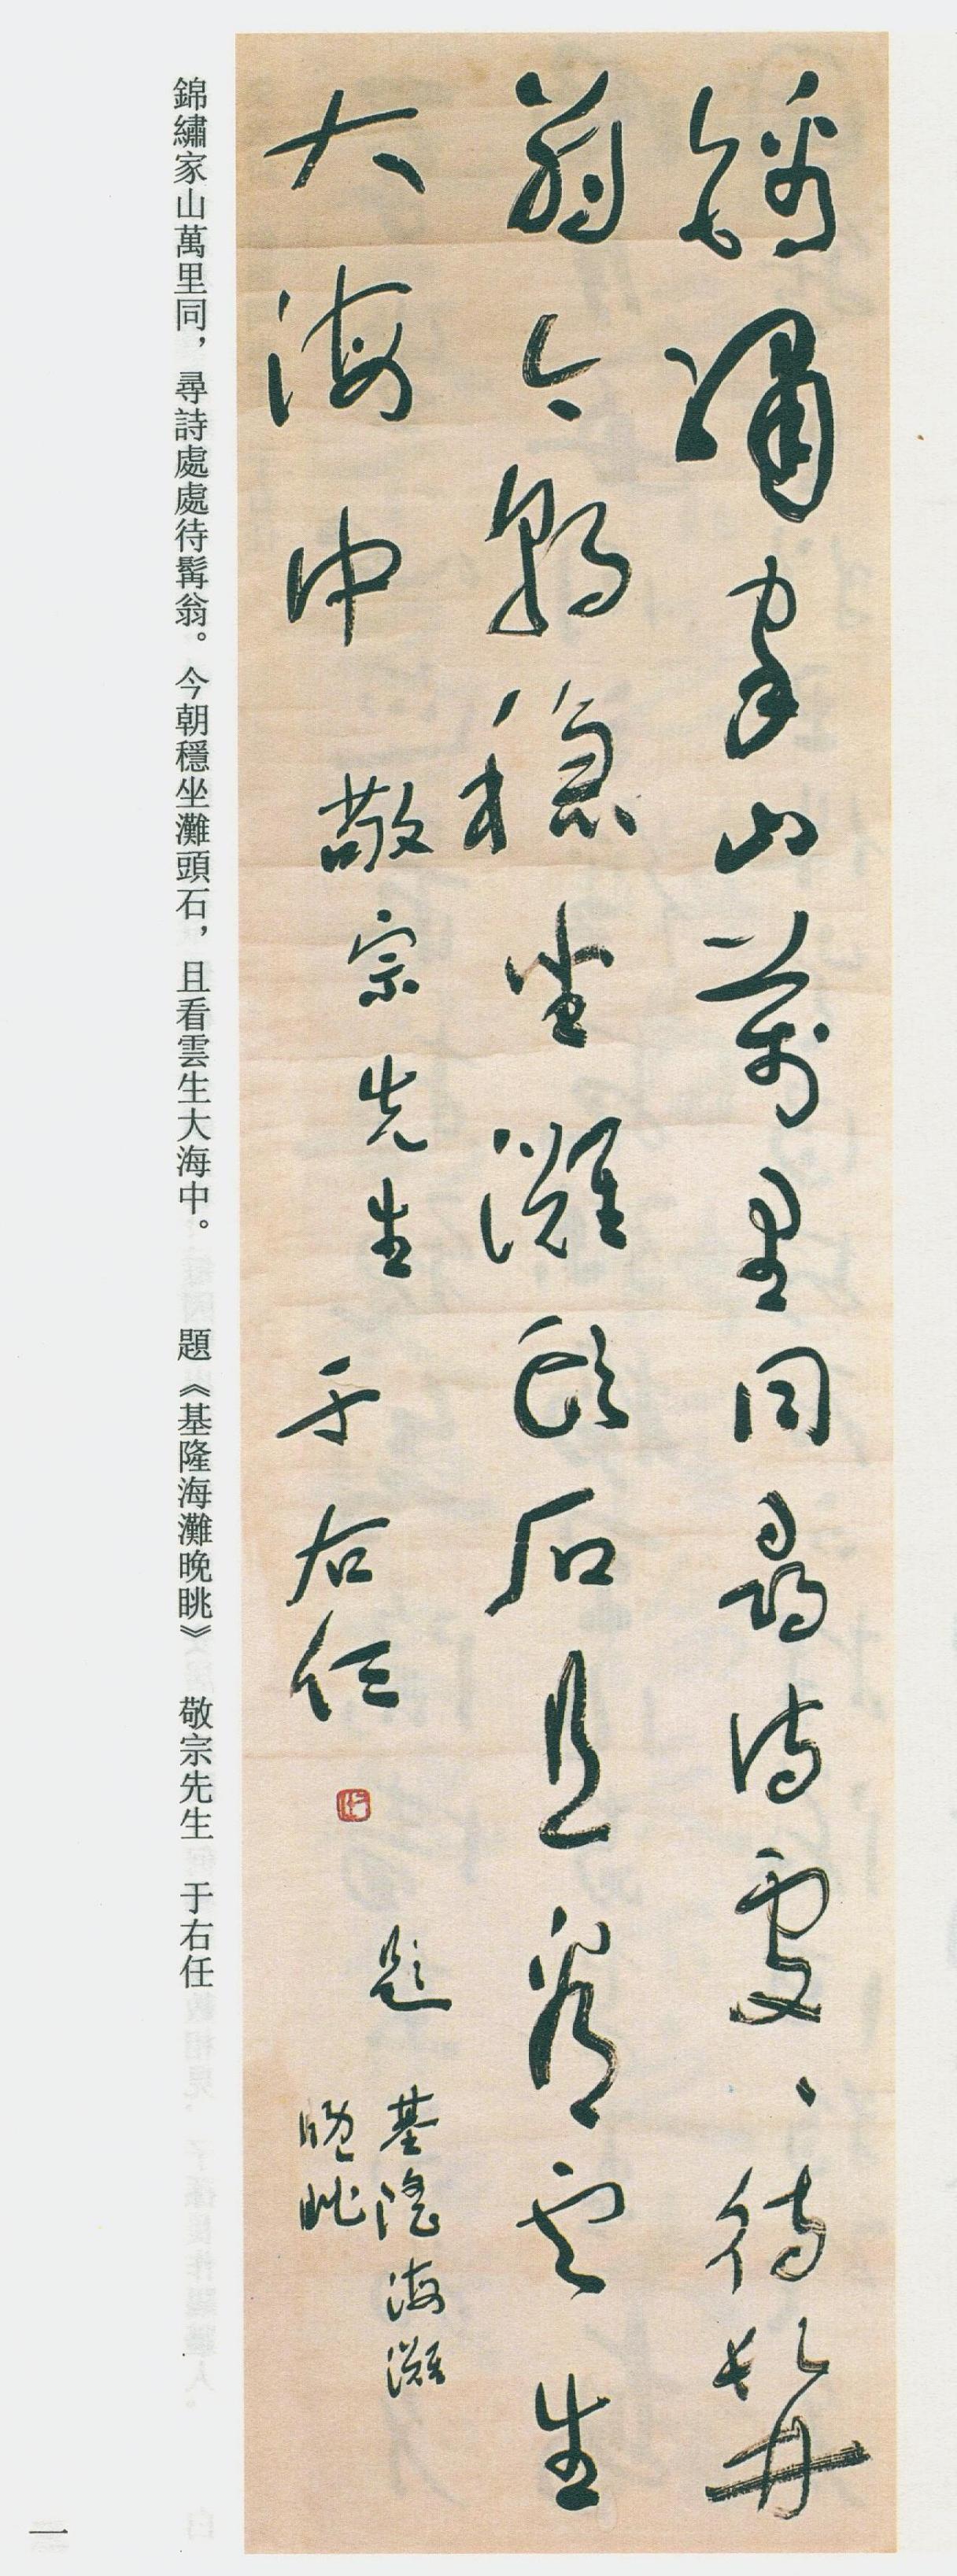 錦繡家山萬里同尋詩處〻待髯
翁今朝穩坐灘頭石且看雲生
大海中 敬宗先生 于右任
題 基隆海灘
晚眺
錦繡家山萬里同，尋詩處處待髯翁。今朝穩坐灘頭石，且看雲生大海中。 題《基隆海灘晚眺》 敬宗先生 于右任
一